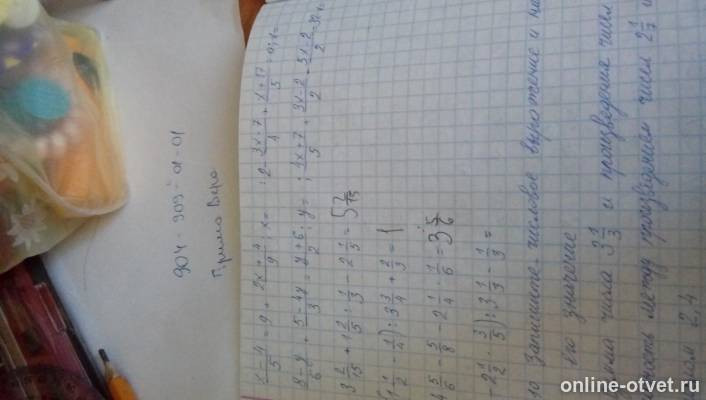 904-909-01-01
Вера
(x-4)/5 = 9 + (2x+4)/9; x=
; 2 - (3x-7)/4 + (x+17)/5 = 0; x=
(8-y)/6 + (5-4y)/3 = (y+6)/2; y=
; (4x+7)/5 + (3x-2)/2 - (5x-2)/2 = 32; x
3 2/15 + 1 2/5 : 1/3 - 2 1/5 = 5 2/15
1/2 - 1/4) : 3 3/4 + 2/3 = 1
4 5/6 - 5/8 - 2 1/4 · 1/6 = 3 5/6
- 2 1/2 · 3/5) : 3 1/3 - 1/3 =
10 Запишите числовое выражение и на
его значение
мма числа 3 1/3 и произведения чисел
ность между произведением чисел 2 1/7 и
лом 2,4
online-otvet.ru